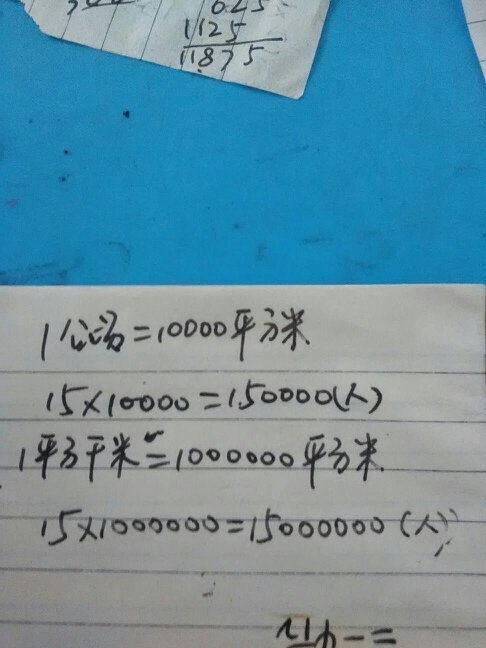 625
1125
11875
1公顷=10000平方米
15×10000=150000(人)
1平方千米=1000000平方米
15×1000000=15000000(人)